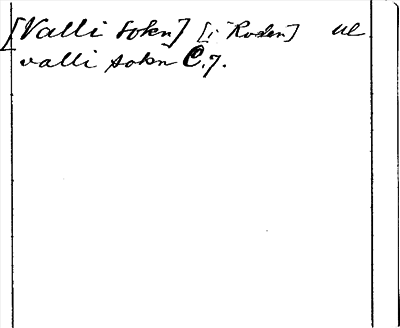 [Valli sokn] [i Roden] Ul.
valli sokn C.7.